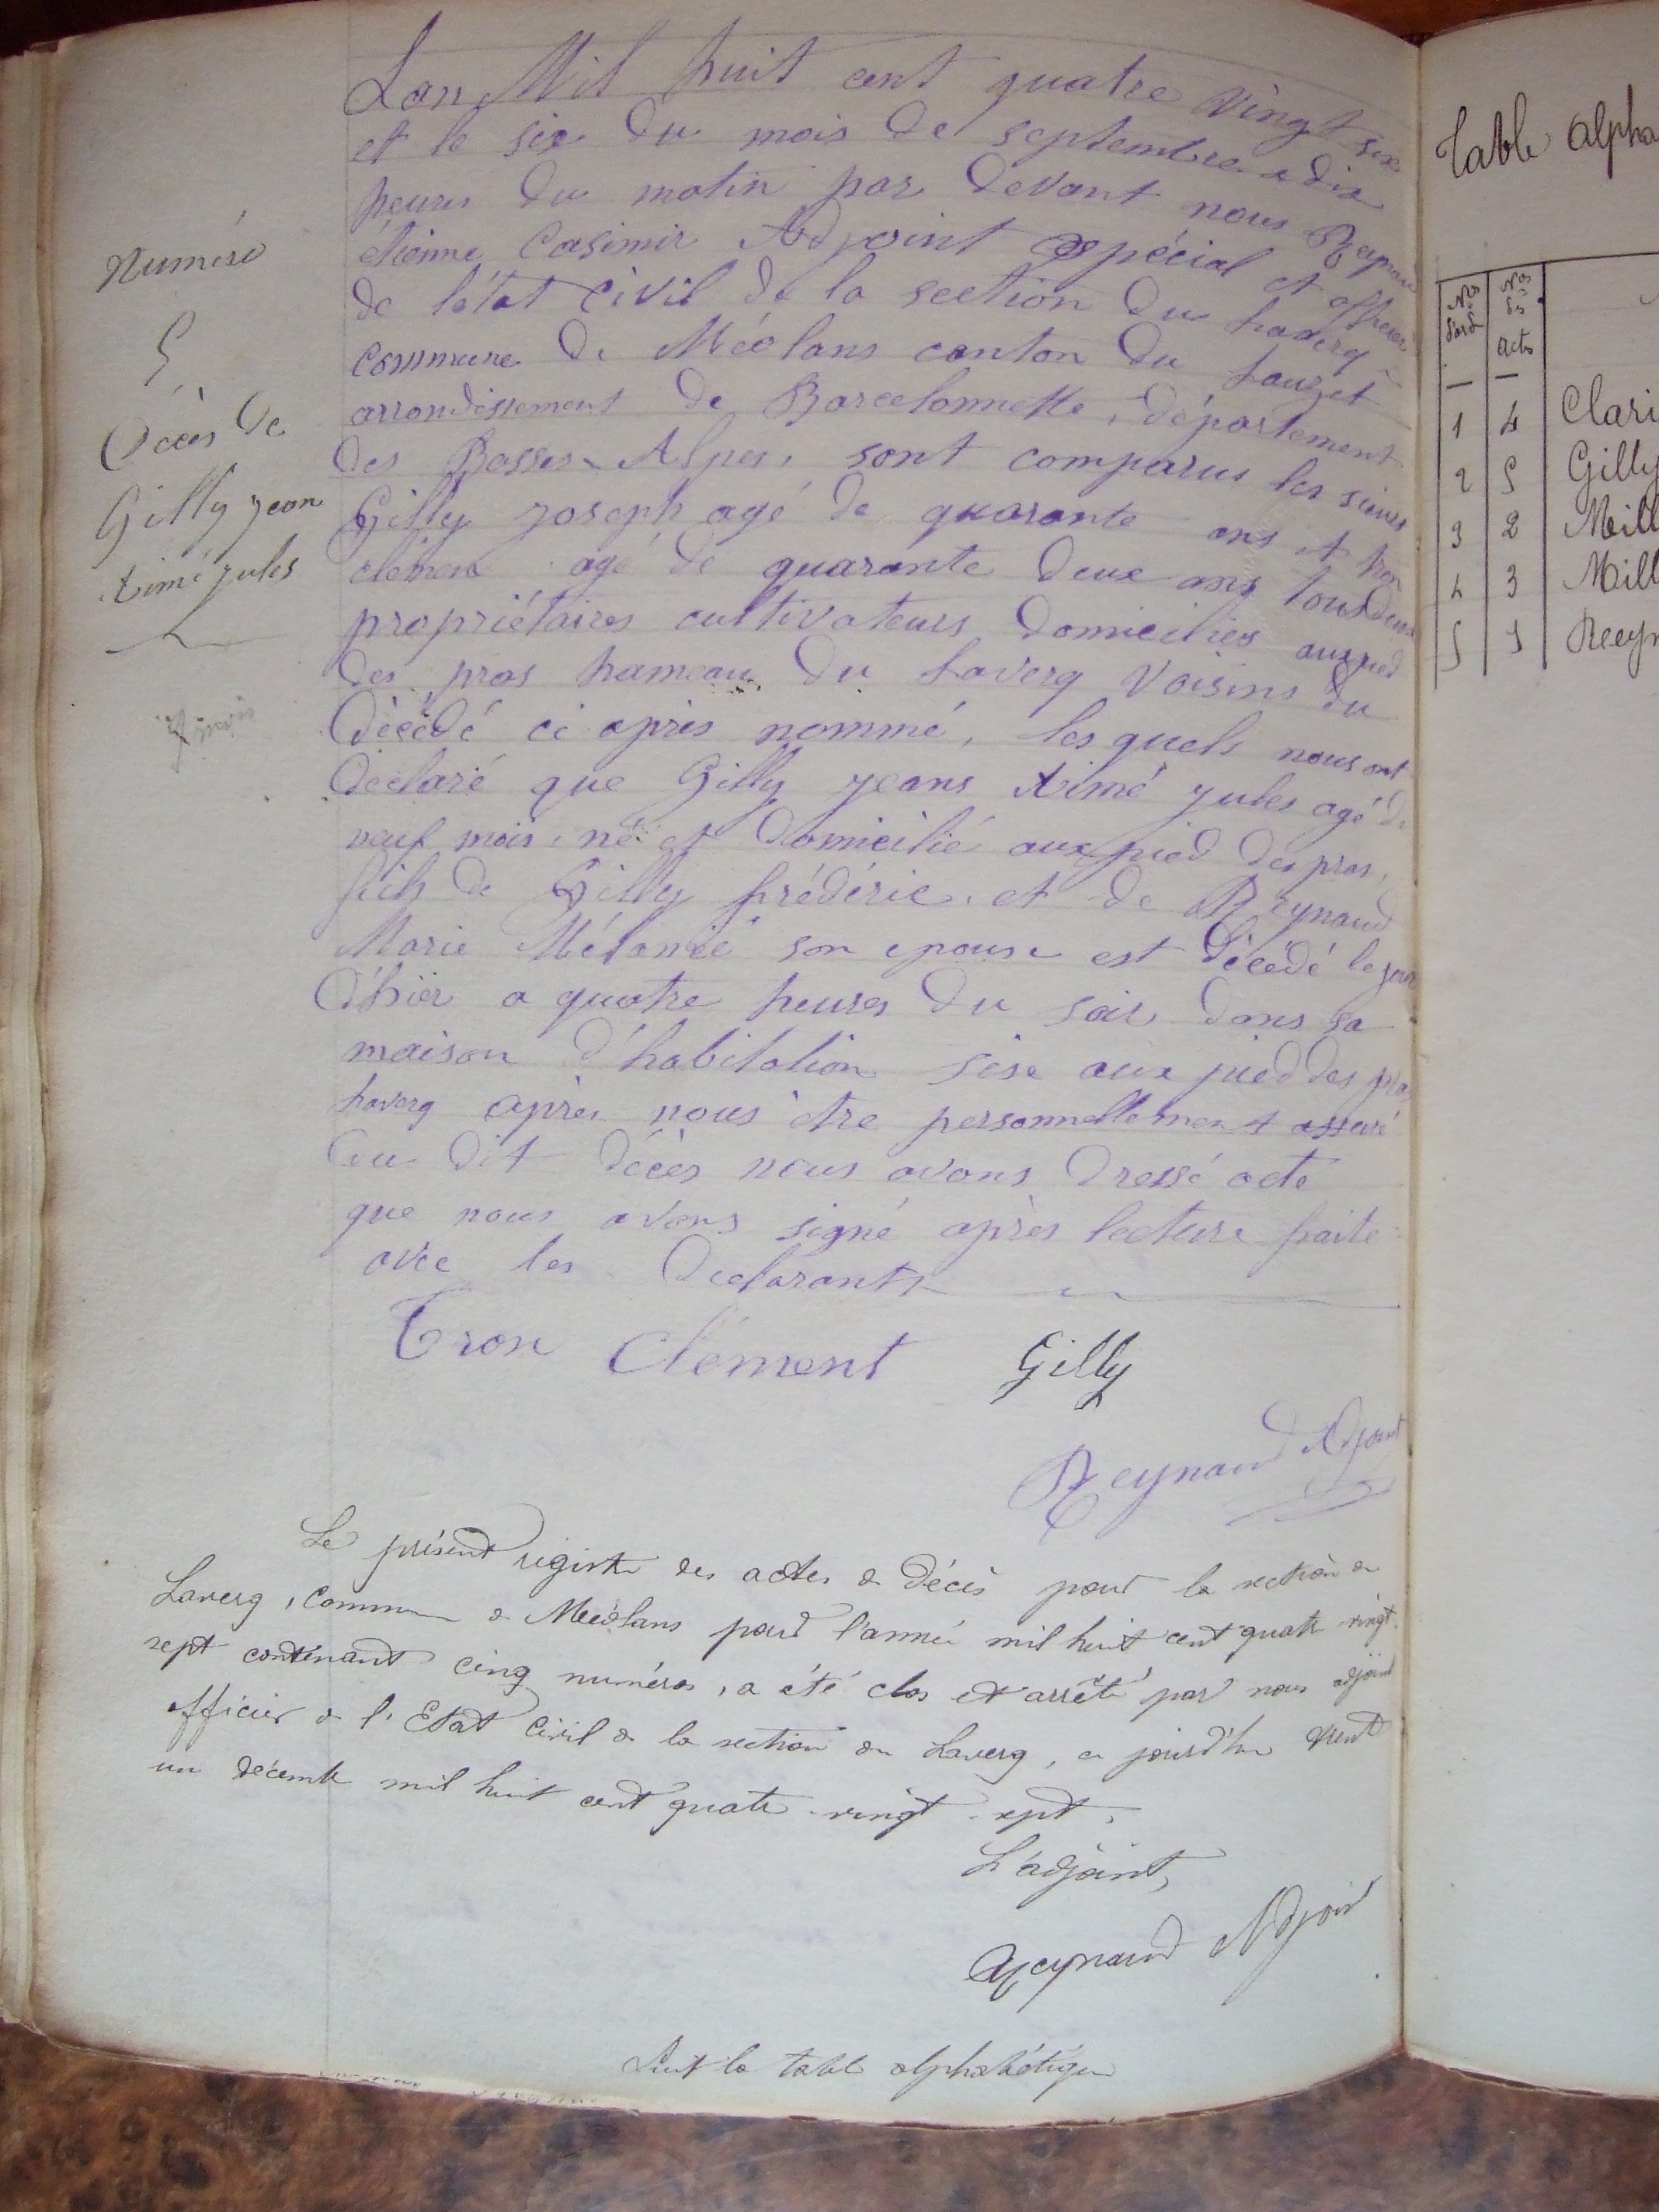 Numéro
5
Décès de
Gilly jean
Aimé jules
L'an Mil huit cent quatre vingt six
et le six du mois de septembre a dix
heures du matin par devant nous Reynaud
étienne Casimir Adjoint espécial et officier
de l'état Civil de la section du haverq
commune de Méolans canton du Lauzet
arrondissement de Barcelonnette, département
des Basses-Alpes, sont comparus les sieurs
Gilly joseph agé de quarante ans et tron
clément agé de quarante deux ans tous deux
propriétaires cultivateurs domiciliés aux pied
des pras hameau du Laverq Voisins du
Décédé ci après nommé, les quels nous ont
Déclaré que Gilly jeans Aimé jules agé de
neuf mois, né et domicilié aux pied des pras,
fils de Gilly frédéric, et de Reynaud
Marie Mélanie son epouse est Décédé le jour
d'hier a quatre heures du soir dans sa
maison d'habitation sise aux pied des pras
haverq après nous être personnellement assuré
du dit décès nous avons dressé acte
que nous avons signé après lecture faite
avec les Declarants
Tron Clément Gilly
Reynaud Adjoint
Le présent registre des actes de décès pour la section de
Laverq, commune de Méolans pour l'année mil huit cent quatre vingt
sept contenant cinq numéros, a été clos et arrêté par nous adjoint
officier de l'Etat Civil de la section de Laverq, ce jourd'hui trente
un décembre mil huit cent quatre-vingt-sept,
L'adjoint,
Reynaud Adjoint
Suit la table alphabétique
Table alpha
Nos d'ord Nos des actes
1 4 Clari
2 5 Gilly
3 2 Mill
4 3 Mill
5 1 Reyn